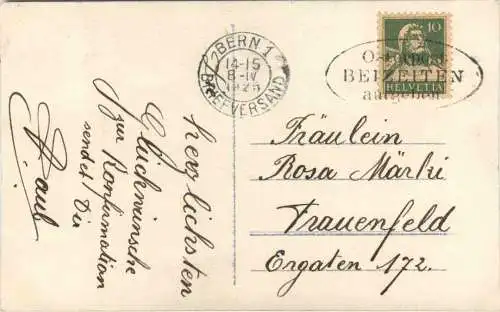 herzlichsten
Glückwünsche
zur Konfirmation
sendet Dir
Paul
BERN 1
14-15
8-IV
1925
BRIEFVERSAND
BEIZEITEN
aufgeben
10
HELVETIA
Fräulein
Rosa Märki
Frauenfeld
Ergaten 172.